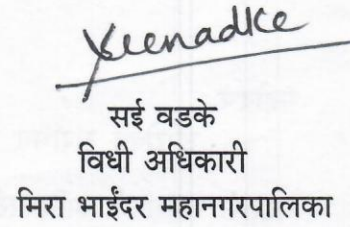 सई वडके
विधी अधिकारी
मिरा भाईंदर महानगरपालिका